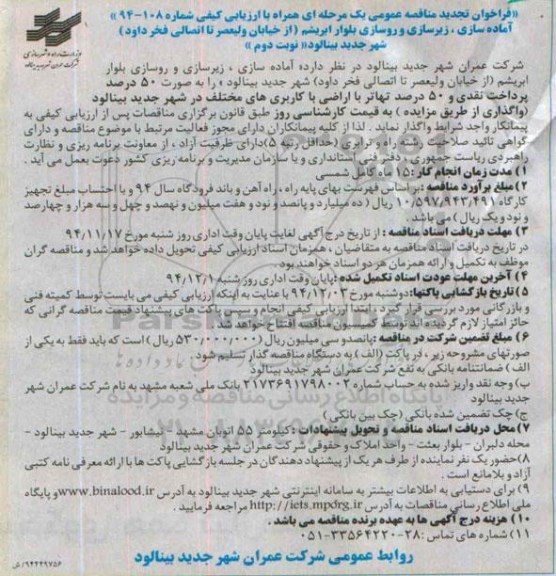 «فراخوان تجدید مناقصه عمومی یک مرحله ای همراه با ارزیابی کیفی شماره ۱۰۸-۹۴»
آماده سازی ، زیرسازی و روسازی بلوار ابریشم (از خیابان ولیعصر تا اتصالی فخر داود)
شهر جدید بینالود« نوبت دوم »
شرکت عمران شهر جدید بینالود در نظر دارد، آماده سازی ، زیرسازی و روسازی بلوار
ابریشم (از خیابان ولیعصر تا اتصالی فخر داود) شهر جدید بینالود ، را به صورت ۵۰ درصد
پرداخت نقدی و ۵۰ درصد تهاتر با اراضی با کاربری های مختلف در شهر جدید بینالود
(واگذاری از طریق مزایده ) به قیمت کارشناسی روز طبق قانون برگزاری مناقصات پس از ارزیابی کیفی به
پیمانکار واجد شرایط واگذار نماید . لذا از کلیه پیمانکاران دارای مجوز فعالیت مرتبط با موضوع مناقصه و دارای
گواهی تائید صلاحیت رشته راه و ترابری (حداقل رتبه ۵)دارای ظرفیت آزاد ، از معاونت برنامه ریزی و نظارت
راهبردی ریاست جمهوری ، دفتر فنی استانداری و یا سازمان مدیریت و برنامه ریزی کشور دعوت بعمل می آید .
۱) مدت زمان انجام کار :۱۵ ماه کامل شمسی
۲) مبلغ برآورد مناقصه :بر اساس فهرست بهای پایه راه ، راه آهن و باند فرودگاه سال ۹۴ و با احتساب مبلغ تجهیز
کارگاه ۱۰/۵۹۷/۹۴۳/۴۹۱ ریال ( ده میلیارد و پانصد و نود و هفت میلیون و نهصد و چهل و سه هزار و چهارصد
و نود و یک ریال ) می باشد .
۳) مهلت دریافت اسناد مناقصه : از تاریخ درج آگهی لغایت پایان وقت اداری روز شنبه مورخ ۹۴/۱۱/۱۷
در تاریخ دریافت اسناد مناقصه به متقاضیان ، همزمان اسناد ارزیابی کیفی تحویل داده خواهد شد و مناقصه گران
موظف به تکمیل و ارائه همزمان هر دو اسناد خواهند بود
۴) آخرین مهلت عودت اسناد تکمیل شده :پایان وقت اداری روز شنبه ۹۴/۱۲/۱
۵) تاریخ بازگشایی پاکتها:دوشنبه مورخ ۹۴/۱۲/۰۳ با عنایت به اینکه ارزیابی کیفی می بایست توسط کمیته فنی
و بازرگانی مورد بررسی قرار گیرد ، ابتدا ارزیابی کیفی انجام و سپس پاکت های پیشنهاد قیمت مناقصه گرانی که
حائز امتیاز لازم گردیده اند توسط کمیسیون مناقصه افتتاح خواهد شد .
۶) مبلغ تضمین شرکت در مناقصه :پانصدو سی میلیون ریال (۵۳۰/۰۰۰/۰۰۰ ریال) است که باید فقط به یکی از
صورتهای مشروحه زیر ، در پاکت (الف ) به دستگاه مناقصه گذار تسلیم شود
الف ) ضمانتنامه بانکی به نفع شرکت عمران شهر جدید بینالود
ب) وجه نقد واریز شده به حساب شماره ۲۱۷۳۶۹۱۷۹۸۰۰۲ بانک ملی شعبه مشهد به نام شرکت عمران شهر
جدید بینالود
ج) چک تضمین شده بانکی (چک بین بانکی )
۷) محل دریافت اسناد مناقصه و تحویل پیشنهادات :کیلومتر ۵۵ اتوبان مشهد - نیشابور - شهر جدید بینالود -
محله دلبران - بلوار بعثت - واحد املاک و حقوقی شرکت عمران شهر جدید بینالود
۸)حضور یک نفر نماینده از طرف هر یک از پیشنهاد دهندگان در جلسه بازگشایی پاکت ها با ارائه معرفی نامه کتبی
آزاد و بلامانع است .
۹) برای دستیابی به اطلاعات بیشتر به سامانه اینترنتی شهر جدید بینالود به آدرس www.binalood.ir وپایگاه
ملی اطلاع رسانی مناقصات به آدرس http://iets.mpdrg.ir مراجعه فرمایید .
۱۰) هزینه درج آگهی ها به عهده برنده مناقصه می باشد .
۱۱) شماره های تماس :۲۸-۳۳۵۶۴۲۲۰-۰۵۱
روابط عمومی شرکت عمران شهر جدید بینالود
۹۴۲۴۹۷۵۶/ش